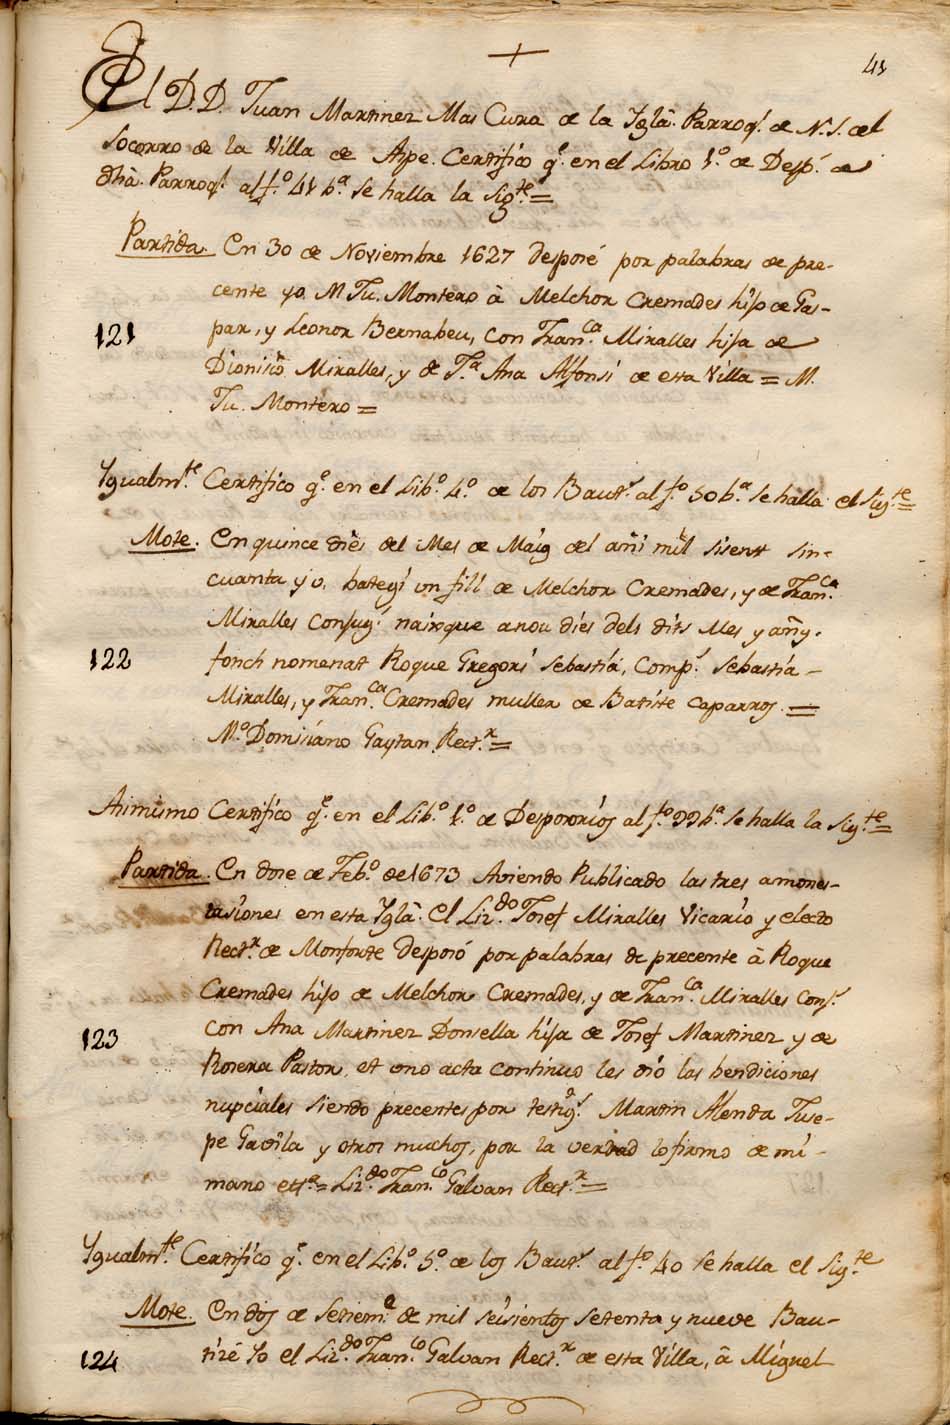 +
41
El D.D. Juan Martinez Mas Cura de la Yglã. Parroql. de N.S. del
Socorro de la Villa de Aspe. Certifico qe. en el Libro 1º de Desp.s de
dhà. Parroql. al fº 41 bª se halla la sigte. =
Partida. En 30 de Noviembre 1627 desposé por palabras de pre-
cente yo M Ju. Montero à Melchor Cremades hijo de Gas-
121
par, y Leonor Bernabeu, con Franca. Miralles hija de
Dionisio Miralles, y de Jª Ana Alfonsi de esta Villa = M.
Ju. Montero =
Ygualmte. Certifico qe. en el Libº. 4º. de los Baut.s al fº. 50 bª. se halla el sigte. =
Mote. En quince dies del Mes de Maig del añi mil sisent sin-
cuanta y o, bategi un fill de Melchor Cremades, y de Franca.
Miralles Conjug.s naixque a nou dies dels dits Mes y añy.
122
fonch nomenat Roque Gregori Sebastiá, Comp.s Sebastiá
Miralles, y Franca. Cremades muller de Batiste Caparros. =
Mº. Domisiano Gaytan. Rectr. =
Asimismo Certifico qe. en el Libº. 1º. de Desposorios al fº. 99 bª. se halla la sigte. =
Partida. En dose de Febº. de 1673 Aviendo Publicado las tres amones-
tasiones en esta Yglã. El Lizdo. Josef Miralles Vicario y electo
Rectr. de Monforte desposó por palabras de precente à Roque
Cremades hijo de Melchor Cremades, y de Franca. Miralles Cons.s
123
con Ana Martinez Donsella hija de Josef Martinez y de
Rosera Pastor, et uno acta continuo les dió las bendiciones
nupciales siendo precentes por testigs. Martin Alenda Juse-
pe Gavila y otros muchos, por la verdad lo firmo de mi
mano etsa. = Lizdo. Franco. Galvan Rectr. =
Ygualmte. Certifico qe. en el Libº. 5º. de los Baut.s al fº. 40 se halla el sigte.
Mote. En dos de Setieme. de mil seisientos setenta y nueve Bau-
124
tizé Yo el Lizdo. Franco. Galvan Rectr. de esta Villa, à Miguel